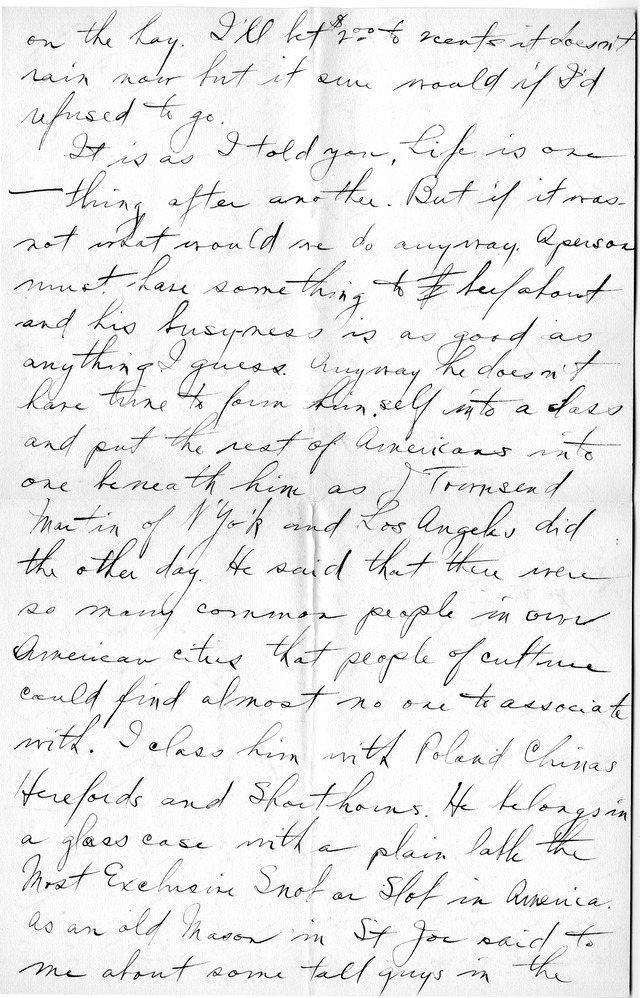 on the hay. I'll bet $2 00 to 2cents it doesn't
rain now but it sure would if I'd
refused to go.
It is as I told you, Life is one
— thing after another. But if it was-
not what would we do anyway. A person
must have something to beef about
and his busy-ness is as good as
anything I guess. Anyway he doesn't
have time to form him self into a class
and put the rest of Americans into
one beneath him as J Townsend
Martin of N'Yo'k and Los Angeles did
the other day. He said that there were
so many common people in our
American cities that people of culture
could find almost no one to associate
with. I class him with Poland Chinas
Herefords and Shorthorns. He belongs in
a glass case with a plain lable the
Most Exclusive Snob or Slob in America.
As an old Mason in St Joe said to
me about some tall guys in the